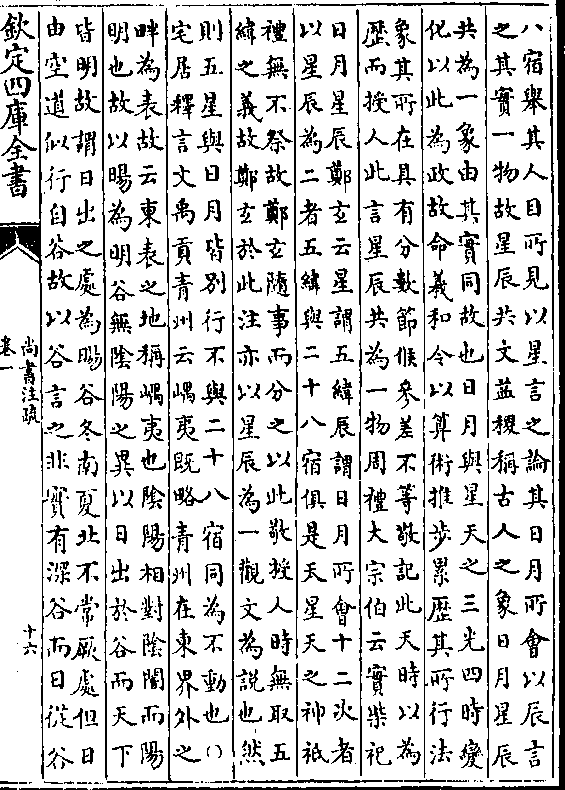 八宿舉其人目所見以星言之論其日月所會以辰言
之其實一物故星辰共文益稷稱古人之象日月星辰
共為一象由其實同故也日月與星天之三光四時變
化以此為政故命羲和令以算術推步累歷其所行法
象其所在具有分數節候參差不等敬記此天時以為
歷而授人此言星辰共為一物周禮大宗伯云實柴祀
日月星辰鄭玄云星謂五緯辰謂日月所會十二次者
以星辰為二者五緯與二十八宿俱是天星天之神祇
禮無不祭故鄭玄隨事而分之以此敬授人時無取五
緯之義故鄭玄於此注亦以星辰為一觀文為說也然
則五星與日月皆別行不與二十八宿同為不動也○
宅居釋言文禹貢青州云嵎夷既略青州在東界外之
畔為表故云東表之地稱嵎夷也陰陽相對陰闇而陽
明也故以暘為明谷無陰陽之異以日出於谷而天下
皆明故謂日出之處為暘谷冬南夏北不常厥處但日
由空道似行自谷故以谷言之非實有深谷而日從谷
欽定四庫全書
尚書注疏
卷一
十六